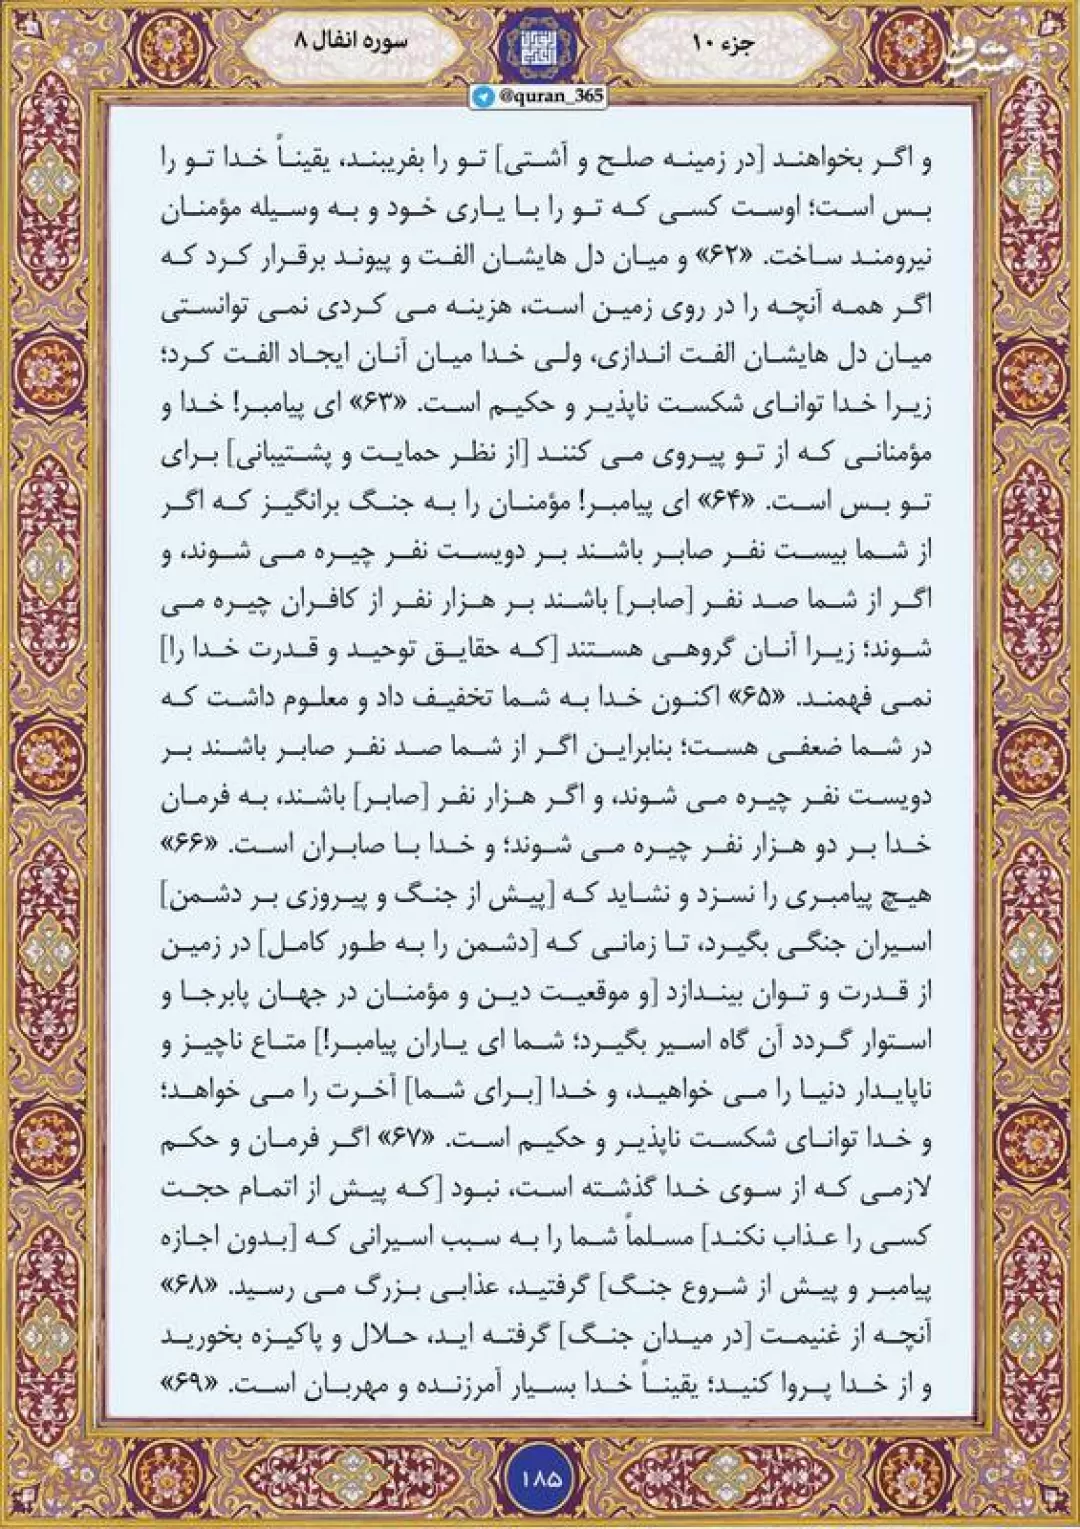 جزء ۱۰
سوره انفال ۸
مشرق
@quran_365
و اگر بخواهند [در زمینه صلح و آشتی] تو را بفریبند، یقیناً خدا تو را
بس است؛ اوست کسی که تو را با یاری خود و به وسیله مؤمنان
نیرومند ساخت. «۶۲» و میان دل هایشان الفت و پیوند برقرار کرد که
اگر همه آنچه را در روی زمین است، هزینه می کردی نمی توانستی
میان دل هایشان الفت اندازی، ولی خدا میان آنان ایجاد الفت کرد؛
زیرا خدا توانای شکست ناپذیر و حکیم است. «۶۳» ای پیامبر! خدا و
مؤمنانی که از تو پیروی می کنند [از نظر حمایت و پشتیبانی] برای
تو بس است. «۶۴» ای پیامبر! مؤمنان را به جنگ برانگیز که اگر
از شما بیست نفر صابر باشند بر دویست نفر چیره می شوند، و
اگر از شما صد نفر [صابر] باشند بر هزار نفر از کافران چیره می
شوند؛ زیرا آنان گروهی هستند [که حقایق توحید و قدرت خدا را]
نمی فهمند. «۶۵» اکنون خدا به شما تخفیف داد و معلوم داشت که
در شما ضعفی هست؛ بنابراین اگر از شما صد نفر صابر باشند بر
دویست نفر چیره می شوند، و اگر هزار نفر [صابر] باشند، به فرمان
خدا بر دو هزار نفر چیره می شوند؛ و خدا با صابران است. «۶۶»
هیچ پیامبری را نسزد و نشاید که [پیش از جنگ و پیروزی بر دشمن]
اسیران جنگی بگیرد، تا زمانی که [دشمن را به طور کامل] در زمین
از قدرت و توان بیندازد [و موقعیت دین و مؤمنان در جهان پابرجا و
استوار گردد آن گاه اسیر بگیرد؛ شما ای یاران پیامبر!] متاع ناچیز و
ناپایدار دنیا را می خواهید، و خدا [برای شما] آخرت را می خواهد؛
و خدا توانای شکست ناپذیر و حکیم است. «۶۷» اگر فرمان و حکم
لازمی که از سوی خدا گذشته است، نبود [که پیش از اتمام حجت
کسی را عذاب نکند] مسلماً شما را به سبب اسیرانی که [بدون اجازه
پیامبر و پیش از شروع جنگ] گرفتید، عذابی بزرگ می رسید. «۶۸»
آنچه از غنیمت [در میدان جنگ] گرفته اید، حلال و پاکیزه بخورید
و از خدا پروا کنید؛ یقیناً خدا بسیار آمرزنده و مهربان است. «۶۹»
۱۸۵